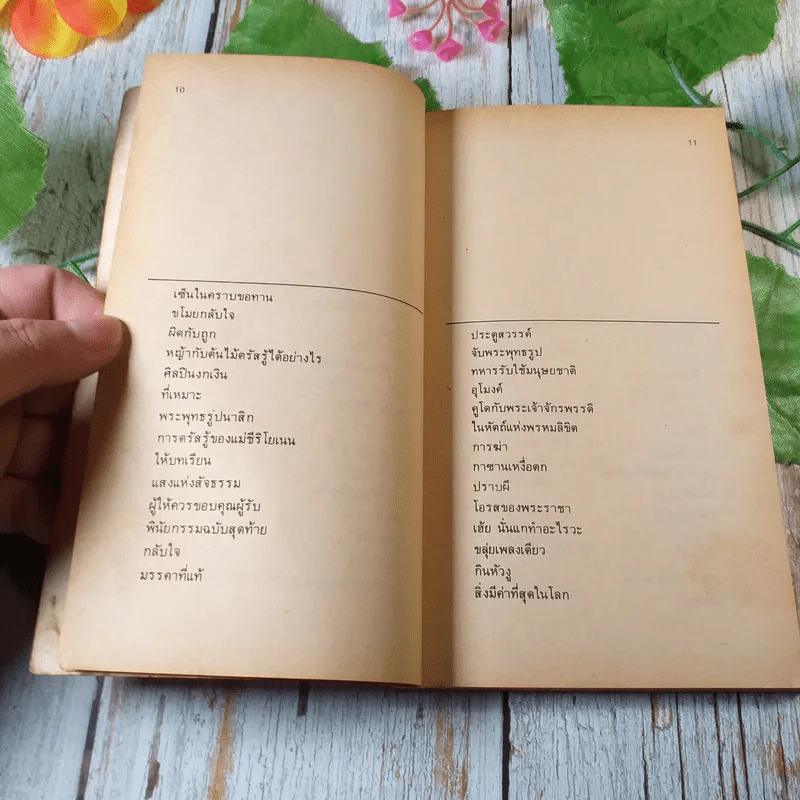 10
เซ็นในคราบขอทาน
ขโมยกลับใจ
ผิดกับถูก
หญ้ากับต้นไม้ตรัสรู้ได้อย่างไร
ศิลปินงกเงิน
ที่เหมาะ
พระพุทธรูปนาสิก
การตรัสรู้ของแม่ชีริโยเนน
ให้บทเรียน
แสงแห่งสัจธรรม
ผู้ให้ควรขอบคุณผู้รับ
พินัยกรรมฉบับสุดท้าย
กลับใจ
มรรคาที่แท้
11
ประตูสวรรค์
จับพระพุทธรูป
ทหารรับใช้มนุษยชาติ
อุโมงค์
คูโดกับพระเจ้าจักรพรรดิ
ในหัตถ์แห่งพรหมลิขิต
การฆ่า
กาซานเหงื่อตก
ปราบผี
โอรสของพระราชา
เฮ้ย นั่นแกทำอะไรวะ
ขลุ่ยเพลงเดียว
กินหัวงู
สิ่งมีค่าที่สุดในโลก